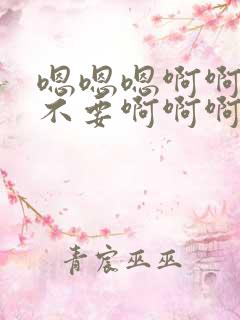 嗯嗯嗯啊啊
不要啊啊啊
青宸巫巫